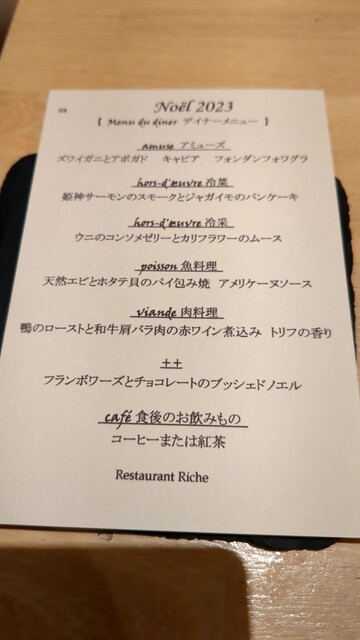 Noël 2023
【 Menu du diner ディナーメニュー 】
amuse アミューズ
ズワイガニとアボガド キャビア フォンダンフォワグラ
hors-d'œuvre 冷菜
姫神サーモンのスモークとジャガイモのパンケーキ
hors-d'œuvre 冷采
ウニのコンソメゼリーとカリフラワーのムース
poisson 魚料理
天然エビとホタテ貝のパイ包み焼 アメリケーヌソース
viande 肉料理
鴨のローストと和牛肩バラ肉の赤ワイン煮込み トリフの香り
++
フランボワーズとチョコレートのブッシェドノエル
café 食後のお飲みもの
コーヒーまたは紅茶
Restaurant Riche